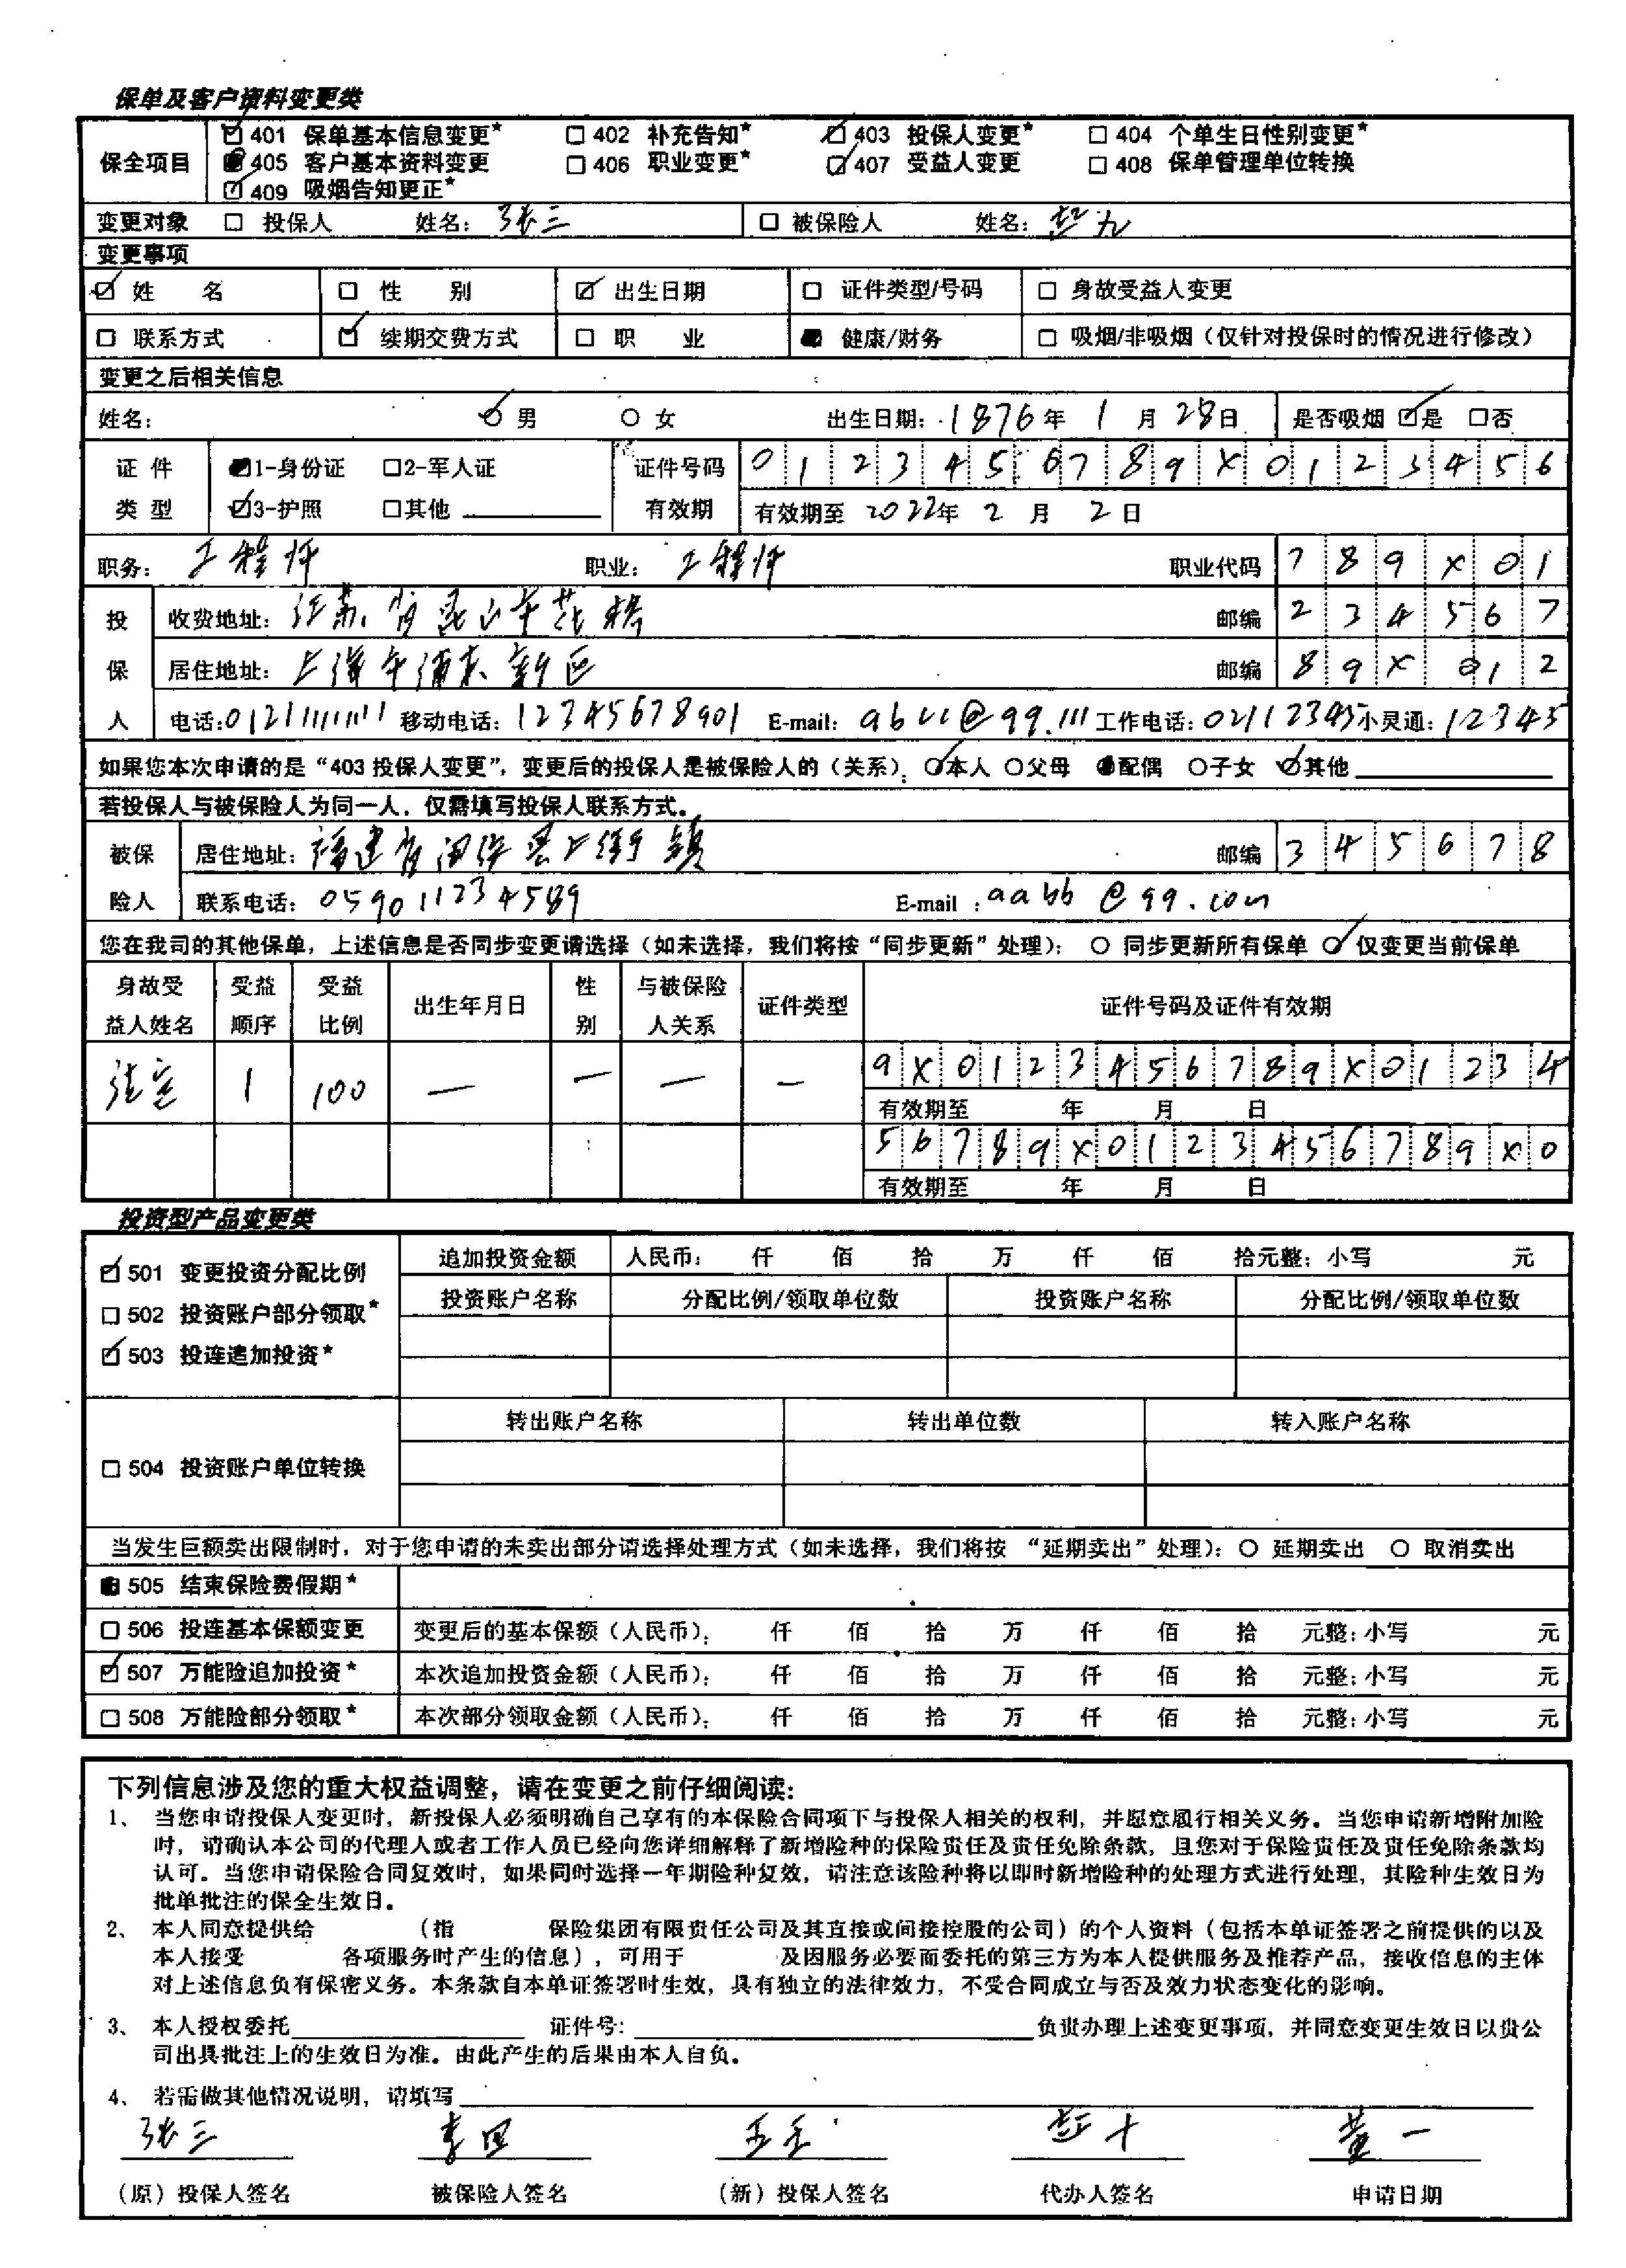 保单及客户资料变更类
保全项目 ☑ 401 保单基本信息变更* □ 402 补充告知* ☑ 403 投保人变更* □ 404 个单生日性别变更*
■ 405 客户基本资料变更 □ 406 职业变更* ☑ 407 受益人变更 □ 408 保单管理单位转换
☑ 409 吸烟告知更正*
变更对象 □ 投保人 姓名：张三 □ 被保险人 姓名：赵九
变更事项
☑ 姓 名 □ 性 别 ☑ 出生日期 □ 证件类型/号码 □ 身故受益人变更
□ 联系方式 ☑ 续期交费方式 □ 职 业 ■ 健康/财务 □ 吸烟/非吸烟（仅针对投保时的情况进行修改）
变更之后相关信息
姓名： ☑ 男 ○ 女 出生日期：1876年 1 月 28日 是否吸烟 ☑是 □否
证 件 ■1-身份证 □2-军人证 证件号码 0 1 2 3 4 5 6 7 8 9 X 0 1 2 3 4 5 6
类 型 ☑3-护照 □其他 有效期 有效期至 2022年 2 月 2 日
职务：工程师 职业：工程师 职业代码 7 8 9 X 0 1
投 收费地址：江苏省昆山市花桥 邮编 2 3 4 5 6 7
保 居住地址：上海市浦东新区 邮编 8 9 X 0 1 2
人 电话：01211111111 移动电话：12345678901 E-mail：abcc@qq.111 工作电话：02112345 小灵通：12345
如果您本次申请的是“403 投保人变更”，变更后的投保人是被保险人的（关系）：☑本人 ○父母 ●配偶 ○子女 ☑其他
若投保人与被保险人为同一人，仅需填写投保人联系方式。
被保 居住地址：福建省闽侯县上街镇 邮编 3 4 5 6 7 8
险人 联系电话：059011234589 E-mail：aabb@qq.com
您在我司的其他保单，上述信息是否同步变更请选择（如未选择，我们将按“同步更新”处理）：○ 同步更新所有保单 ☑ 仅变更当前保单
身故受益人姓名 受益顺序 受益比例 出生年月日 性别 与被保险人关系 证件类型 证件号码及证件有效期
法定 1 100 — — — — 9 X 0 1 2 3 4 5 6 7 8 9 X 0 1 2 3 4
有效期至 年 月 日
5 6 7 8 9 X 0 1 2 3 4 5 6 7 8 9 X 0
有效期至 年 月 日
投资型产品变更类
☑ 501 变更投资分配比例 追加投资金额 人民币： 仟 佰 拾 万 仟 佰 拾元整；小写 元
□ 502 投资账户部分领取* 投资账户名称 分配比例/领取单位数 投资账户名称 分配比例/领取单位数
☑ 503 投连追加投资*
转出账户名称 转出单位数 转入账户名称
□ 504 投资账户单位转换
当发生巨额卖出限制时，对于您申请的未卖出部分请选择处理方式（如未选择，我们将按 “延期卖出”处理）：○ 延期卖出 ○ 取消卖出
■ 505 结束保险费假期*
□ 506 投连基本保额变更 变更后的基本保额（人民币）： 仟 佰 拾 万 仟 佰 拾 元整；小写 元
☑ 507 万能险追加投资* 本次追加投资金额（人民币）： 仟 佰 拾 万 仟 佰 拾 元整；小写 元
□ 508 万能险部分领取* 本次部分领取金额（人民币）： 仟 佰 拾 万 仟 佰 拾 元整；小写 元
下列信息涉及您的重大权益调整，请在变更之前仔细阅读：
1、 当您申请投保人变更时，新投保人必须明确自己享有的本保险合同项下与投保人相关的权利，并愿意履行相关义务。当您申请新增附加险
时，请确认本公司的代理人或者工作人员已经向您详细解释了新增险种的保险责任及责任免除条款，且您对于保险责任及责任免除条款均
认可。当您申请保险合同复效时，如果同时选择一年期险种复效，请注意该险种将以即时新增险种的处理方式进行处理，其险种生效日为
批单批注的保全生效日。
2、 本人同意提供给 （指 保险集团有限责任公司及其直接或间接控股的公司）的个人资料（包括本单证签署之前提供的以及
本人接受 各项服务时产生的信息），可用于 及因服务必要而委托的第三方为本人提供服务及推荐产品，接收信息的主体
对上述信息负有保密义务。本条款自本单证签署时生效，具有独立的法律效力，不受合同成立与否及效力状态变化的影响。
3、 本人授权委托 证件号： 负责办理上述变更事项，并同意变更生效日以贵公
司出具批注上的生效日为准。由此产生的后果由本人自负。
4、 若需做其他情况说明，请填写
张三 李四 王五 赵十 黄一
（原）投保人签名 被保险人签名 （新）投保人签名 代办人签名 申请日期